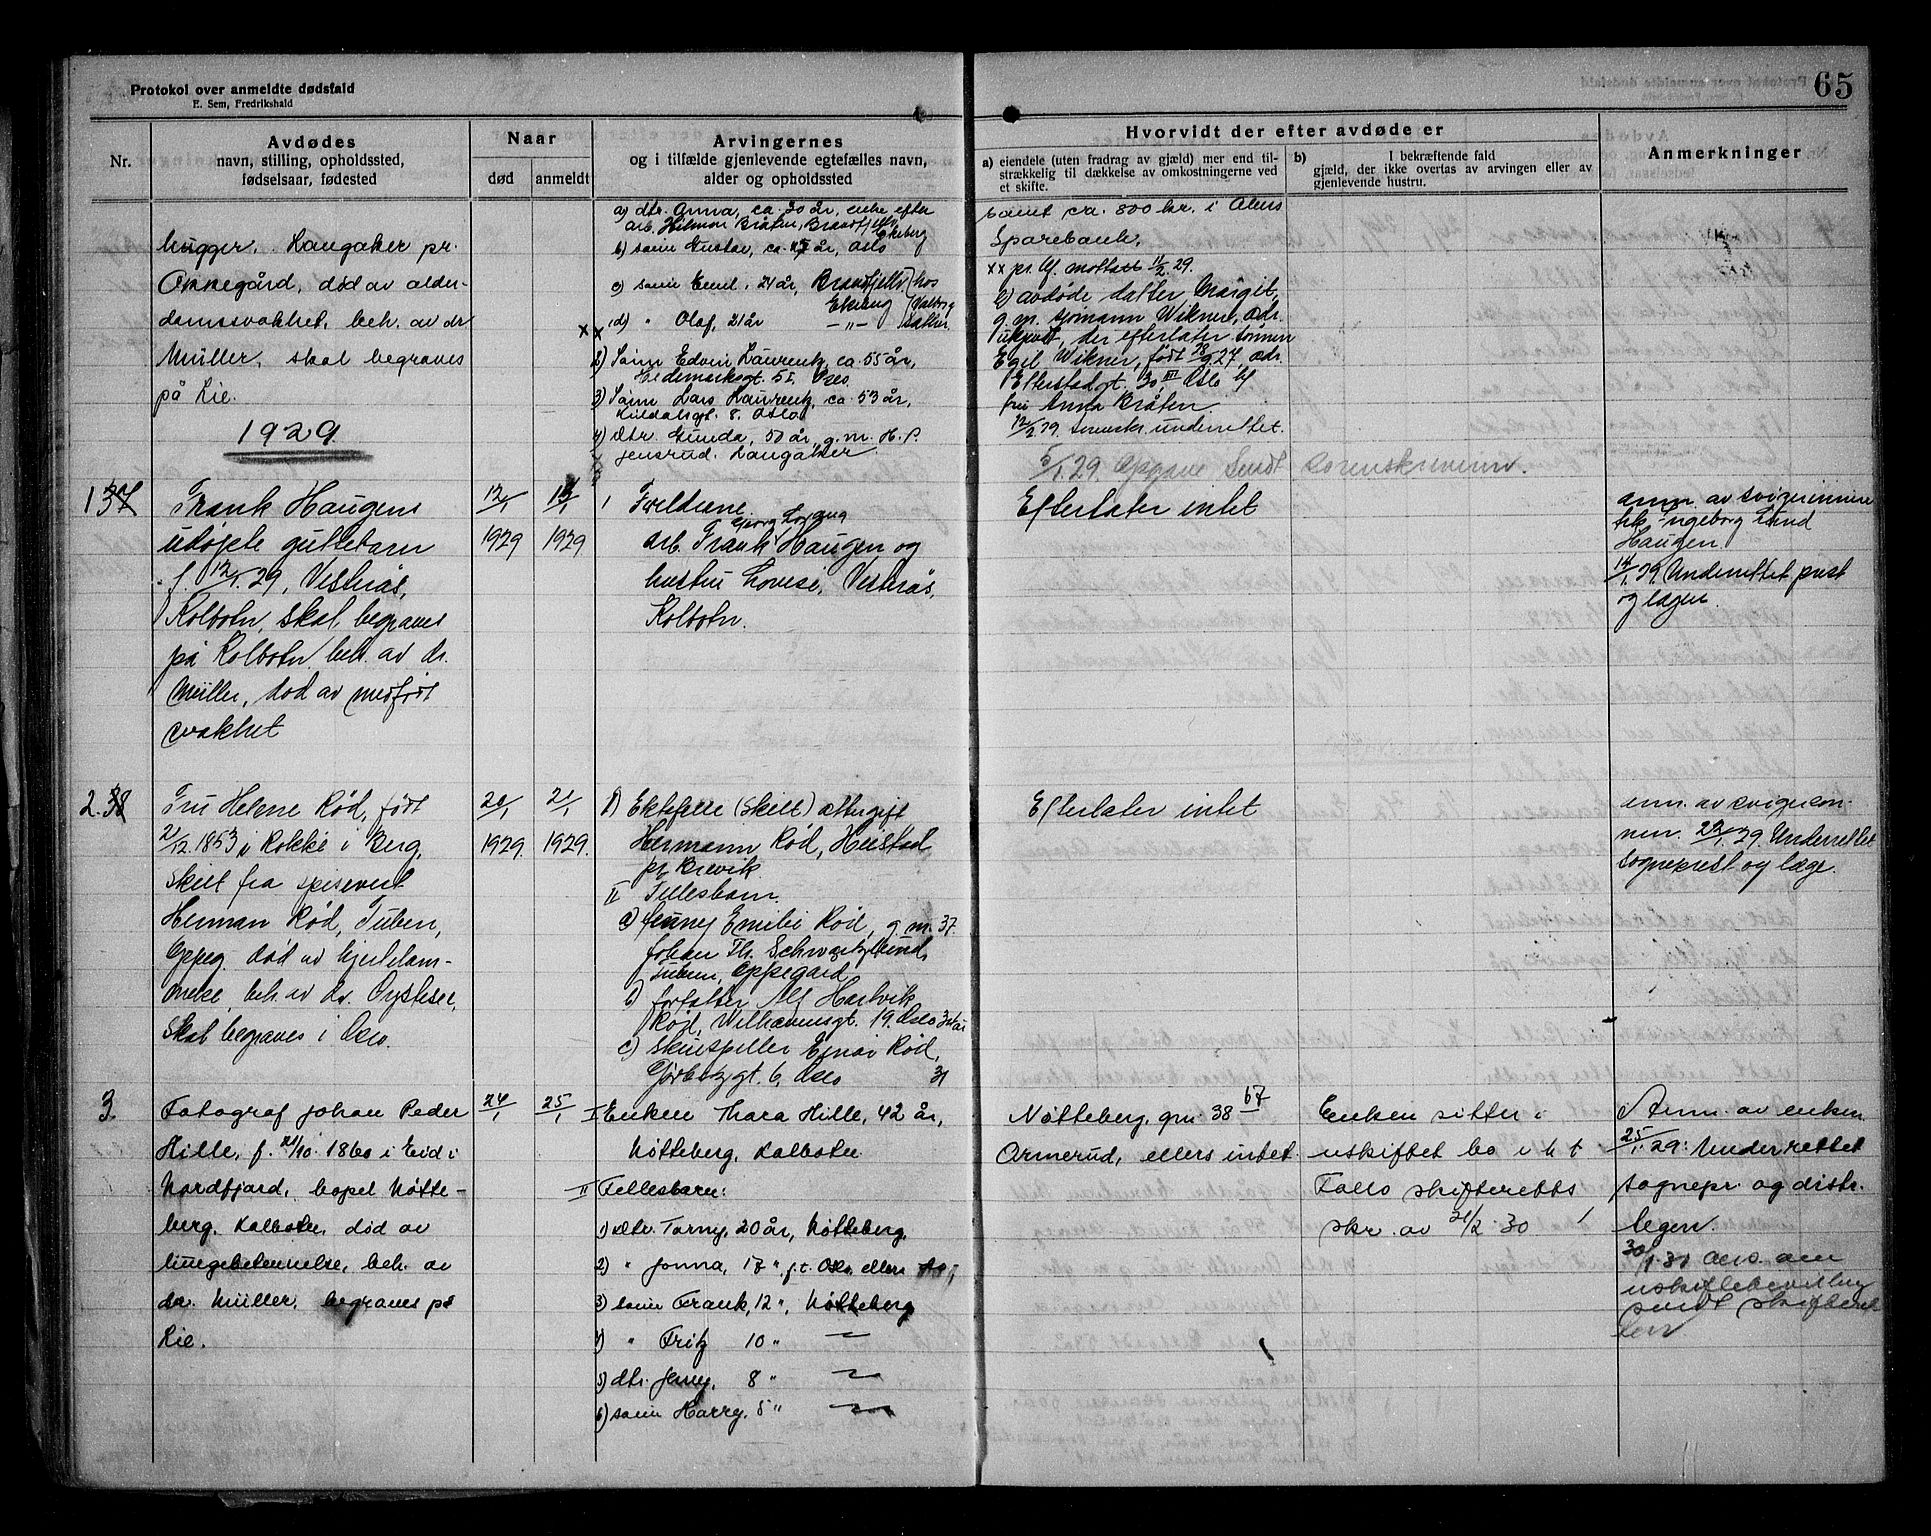 Protokol over anmeldte dødsfald
E. Sem, Fredrikshald
65
Nr.
Avdødes
navn, stilling, opholdssted,
fødselsaar, fødested
Naar
død
anmeldt
Arvingernes
og i tilfælde gjenlevende egtefælles navn,
alder og opholdssted
Hvorvidt der efter avdøde er
a) eiendele (uten fradrag av gjæld) mer end til-
strækkelig til dækkelse av omkostningerne ved
et skifte.
b) I bekræftende fald
gjæld, der ikke overtas av arvingen eller av
gjenlevende hustru.
Anmerkninger
hugger, Langaker pr.
Oppegård, død av alder-
domssvakhet, beh. av dr
Müller, skal begraves
på Lie.
1929
a) dtr. Anna, ca. 30 år, enke efter
arb. Hilmar Bråten,
b) sønn Gustav, ca. år, Oslo
c) sønn Emil, 24 år, hos
d) " Olaf, 21 år -"-
xx
2) Sønn Edvin Laurentz, ca. 55 år,
Hedemarksgt. 5 I, Oslo.
3) Sønn Lars Laurentz, ca. 53 år,
gt. 8, Oslo
4) Dtr. Gunda, 50 år, g.m. H. P.
Jensrud, Langaker.
samt ca. 800 kr. i Akers
Sparebank.
xx pr. tlf. mottatt 11/2 29.
e) avdøde datter Margit,
g. m. sjømann Wikner, adr.
ukjent, der efterlater sønnen
Egil Wikner, født 27, adr.
Etterstadgt. 30 III, Oslo tlf
fru Anna Bråten.
12/2 29. sorenskr. underrettet.
5/1 29. Opgave sendt sorenskriveren.
1 37
Frank Haugens
udøpte guttebarn
f. 12/1. 29, Vestrås,
Kolbotn, skal begraves
på Kolbotn, beh. av dr.
Müller, død av medfødt
svakhet
12/1
1929
14/1
1929
1 Foreldrene
arb. Frank Georg Haugen og
hustru Lovise, Vestrås,
Kolbotn.
Efterlater intet
anm. av svigerinnen
frk. Ingeborg Lund
Haugen.
14/1. 29. Underrettet prest
og lægen.
2. 38
Fru Helene Rød, født
21/12. 1853 i Rokke i Berg,
skilt fra spisevert
Herman Rød, Tuben,
Oppeg. død av hjertelam-
melse, beh. av dr.
skal begraves i Oslo.
20/1
1929.
21/1
1929.
1) Ektefelle (skilt) attergift
Hermann Rød, Heistad
pr. Brevik.
II Fellesbarn.
a) Jenny Emilie Rød, g. m. 37.
Johan Th. Schwartzlund,
Tuben, Oppegård
b) forfatter Alf Hartvik
Rød, Welhavensgt. 19. Oslo 34 år
c) skuespiller Einar Rød,
gt. 6, Oslo 31
Efterlater intet
anm. av svigersøn-
nen. 22/1. 29. Underrettet
sogneprest og læge.
3
Fotograf Johan Peder
Hille, f. 21/10. 1860 i Eid i
Nordfjord, bopel Nøtte-
berg, Kolbotn, død av
lungebetennelse, beh. av
dr. Müller, begraves på
Lie.
24/1
25/1
I Enken Thora Hille, 42 år,
Nøtteberg, Kolbotn.
II Fellesbarn:
1) Dtr. Torny, 20 år, Nøtteberg,
2) " Jonna, 17 ", f.t. Oslo, ellers
3) sønn Frank, 12 ", Nøtteberg
4) " Fritz 10 " -"-
5) dtr. Jenny, 8 " -"-
6) sønn Harry, 5 " -"-
Nøtteberg, gnr. 38 67
Ormerud, ellers intet.
Enken sitter i
uskiftet bo i h t
Follo skifteretts
skr. av 21/2 30
Anm. av enken
25/1 29: Underrettet
sognepr. og distr.
legen.
30/1. 31
uskiftebevilling
sendt